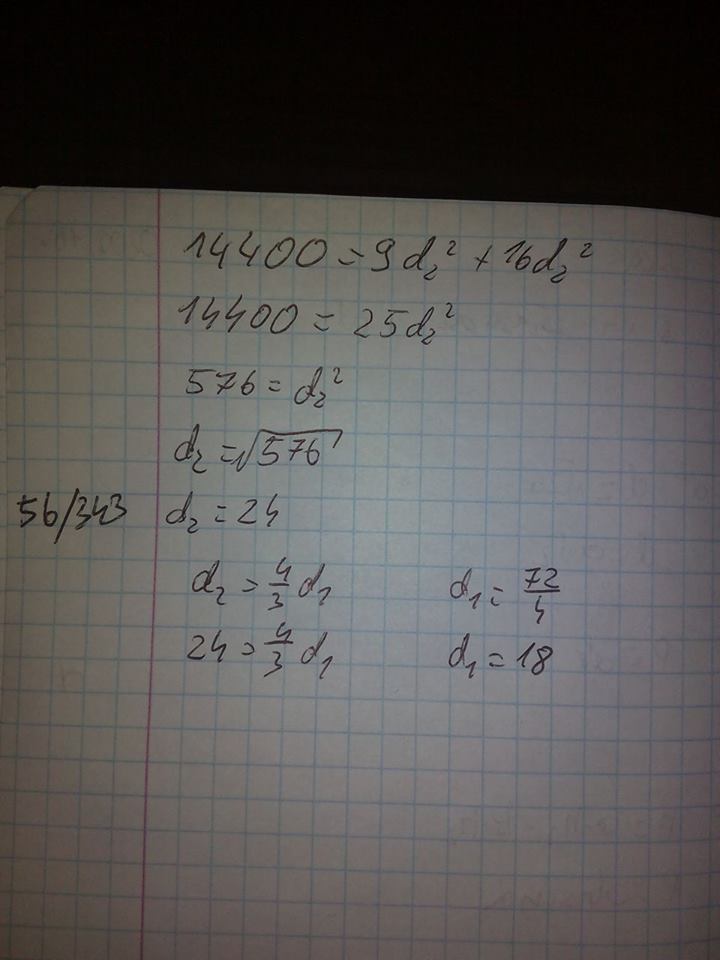 14400 = 9d₂² + 16d₂²
14400 = 25d₂²
576 = d₂²
d₂ = √576
56/343 d₂ = 24
d₂ = 4/3 d₁ d₁ = 72/4
24 = 4/3 d₁ d₁ = 18